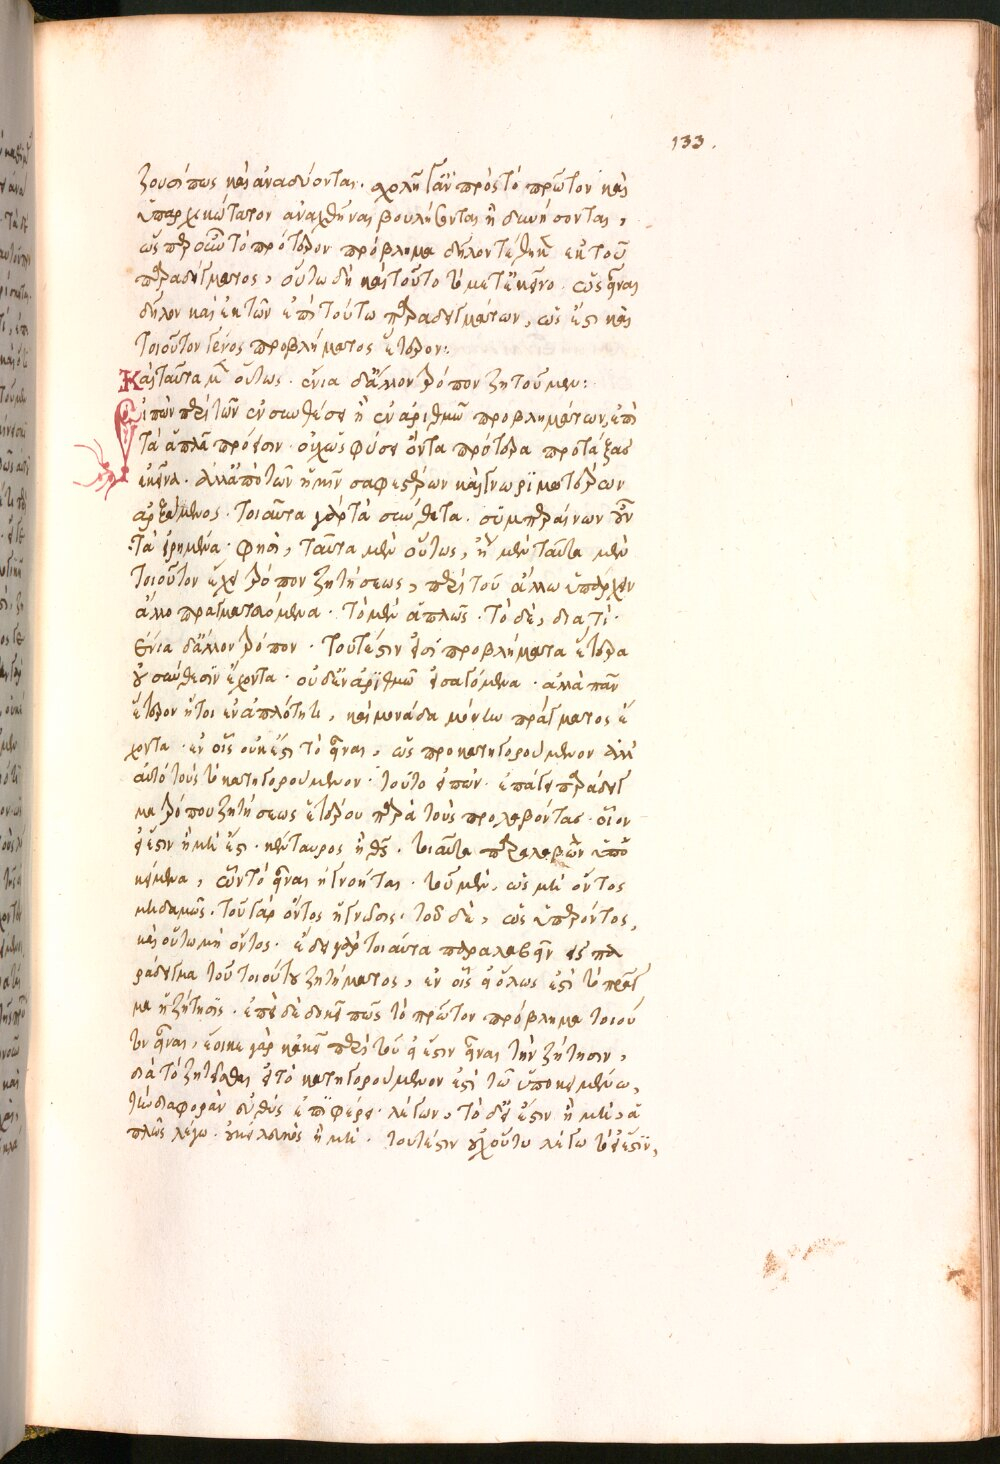 133.
ζουσί πως καὶ ἀναδύονται. σχολῇ γἂν πρὸς τὸ πρῶτον καὶ
ὑπαρχικώτατον ἀναχθῆναι βουλήσονται ἢ δυνήσονται,
ὡς περ οὖν τὸ πρότερον πρόβλημα δῆλον τέθηκεν ἐκ τοῦ
παραδείγματος, οὕτω δὴ καὶ τοῦτο τὸ μετ' ἐκεῖνο. ὡς εἶναι
δῆλον καὶ ἐκ τῶν ἐπὶ τούτω παραδειγμάτων, ὡς ἔστι καὶ
τοιοῦτον γένος προβλήματος ἕτερον:
Καὶ ταῦτα μὲν οὕτως. ἔνια δ' ἄλλον τρόπον ζητοῦμεν:
Εἰπὼν περὶ τῶν ἐν συνθέσει ἢ ἐν ἀριθμῶ προβλημάτων, ἐπὶ
τὰ ἁπλᾶ πρόεισιν. οὐχ ὡς φύσει ὄντα πρότερα προτάξας
ἐκεῖνα. ἀλλ' ἀπὸ τῶν ἡμῖν σαφεστέρων καὶ γνωριμωτέρων
ἀρξάμενος. τοιαῦτα γὰρ τὰ σύνθετα. συμπεραίνων οὖν
τὰ εἰρημένα. φησὶ, ταῦτα μὲν οὕτως, ἢ μὲν ταῦτα μὲν
τοιοῦτον ἔχει τρόπον ζητήσεως, περὶ τοῦ ἄλλω ὑπάρχειν
ἄλλο πραγματευόμενα. τὸ μὲν ἁπλῶς. τὸ δὲ, διατί.
ἔνια δ' ἄλλον τρόπον. τουτέστιν εἰσὶ προβλήματα ἕτερα
οὐ σύνθεσιν ἔχοντα. οὐδ' ἐν ἀριθμῶ εἰσαγόμενα. ἀλλὰ πᾶν
ἕτερον ἤτοι ἐν ἁπλότητι, καὶ μονάδα μόνου πράγματος ἔ
χοντα. ἐν οἷς οὐκ ἔστι τὸ εἶναι, ὡς προκατηγορούμενον ἀλλ'
αὐτὸ τοῦτο κατηγορούμενον. τοῦτο εἰπὼν. ἐπάγει παράδειγ
μα τρόπου ζητήσεως ἑτέρου παρὰ τοὺς προλαβόντας. οἷον
εἰ ἔστιν ἢ μὴ ἔστι. κένταυρος ἢ θεός. τοιαῦτα παραλαβὼν ὑπο
κείμενα, ὧν τὸ εἶναι ἠγνόηται. τοῦ μὲν, ὡς μὴ ὄντος
μηδαμῶς. τοῦ γὰρ ὄντος ἡ γνῶσις. τοῦ δὲ, ὡς ὑπερόντος,
καὶ οὕτω μὴ ὄντος. ἔδει γὰρ τοιαῦτα παραλαβεῖν εἰς πα
ράδειγμα τοῦ τοιούτου ζητήματος, ἐν οἷς εἰ ὅλως ἐστὶ τὸ πρᾶγ
μα ἡ ζήτησις. ἐπεὶ δὲ δοκεῖ πῶς τὸ πρῶτον πρόβλημα τοιοῦ
τον εἶναι, ἔοικε γὰρ κἀκεῖ περὶ τοῦ εἰ ἔστιν εἶναι τὴν ζήτησιν,
διὰ τὸ ζητεῖσθαι εἰ τὸ κατηγορούμενον ἐστὶ τῶ ὑποκειμένω,
τὴν διαφορὰν εὐθὺς ἐπιφέρει. λέγων, τὸ δ' εἰ ἔστιν ἢ μὴ, ἁ
πλῶς λέγω. οὐκ εἰ λευκὸς ἢ μὴ. τουτέστιν οὐχ οὕτω λέγω τὸ εἰ ἔστιν,